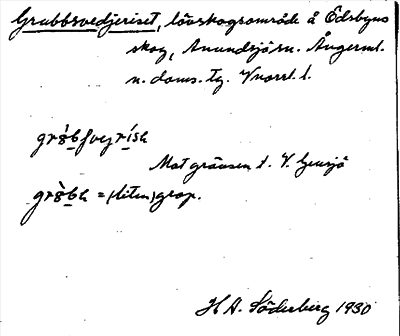 Grubbsvedjeriset, lövskogsområde å Edsbyns
skog, Anundsjö sn. Ångerml.
n. doms. tg. Vnorrl. l.
grò̱bsvejrísh
Mot gränsen t. V. Gensjö
grò̱bh = (liten) grop.
H A. Söderberg 1930